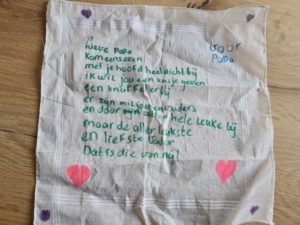 Voor
Papa
Lieve Papa
Kom eens even
met je hoofd heel dichtbij
ik wil jou een kusje geven
een knuffel er bij
er zijn miljoen vaders
en daar zijn hele leuke bij
maar de aller leukste
en liefste
Dat is die van mij!